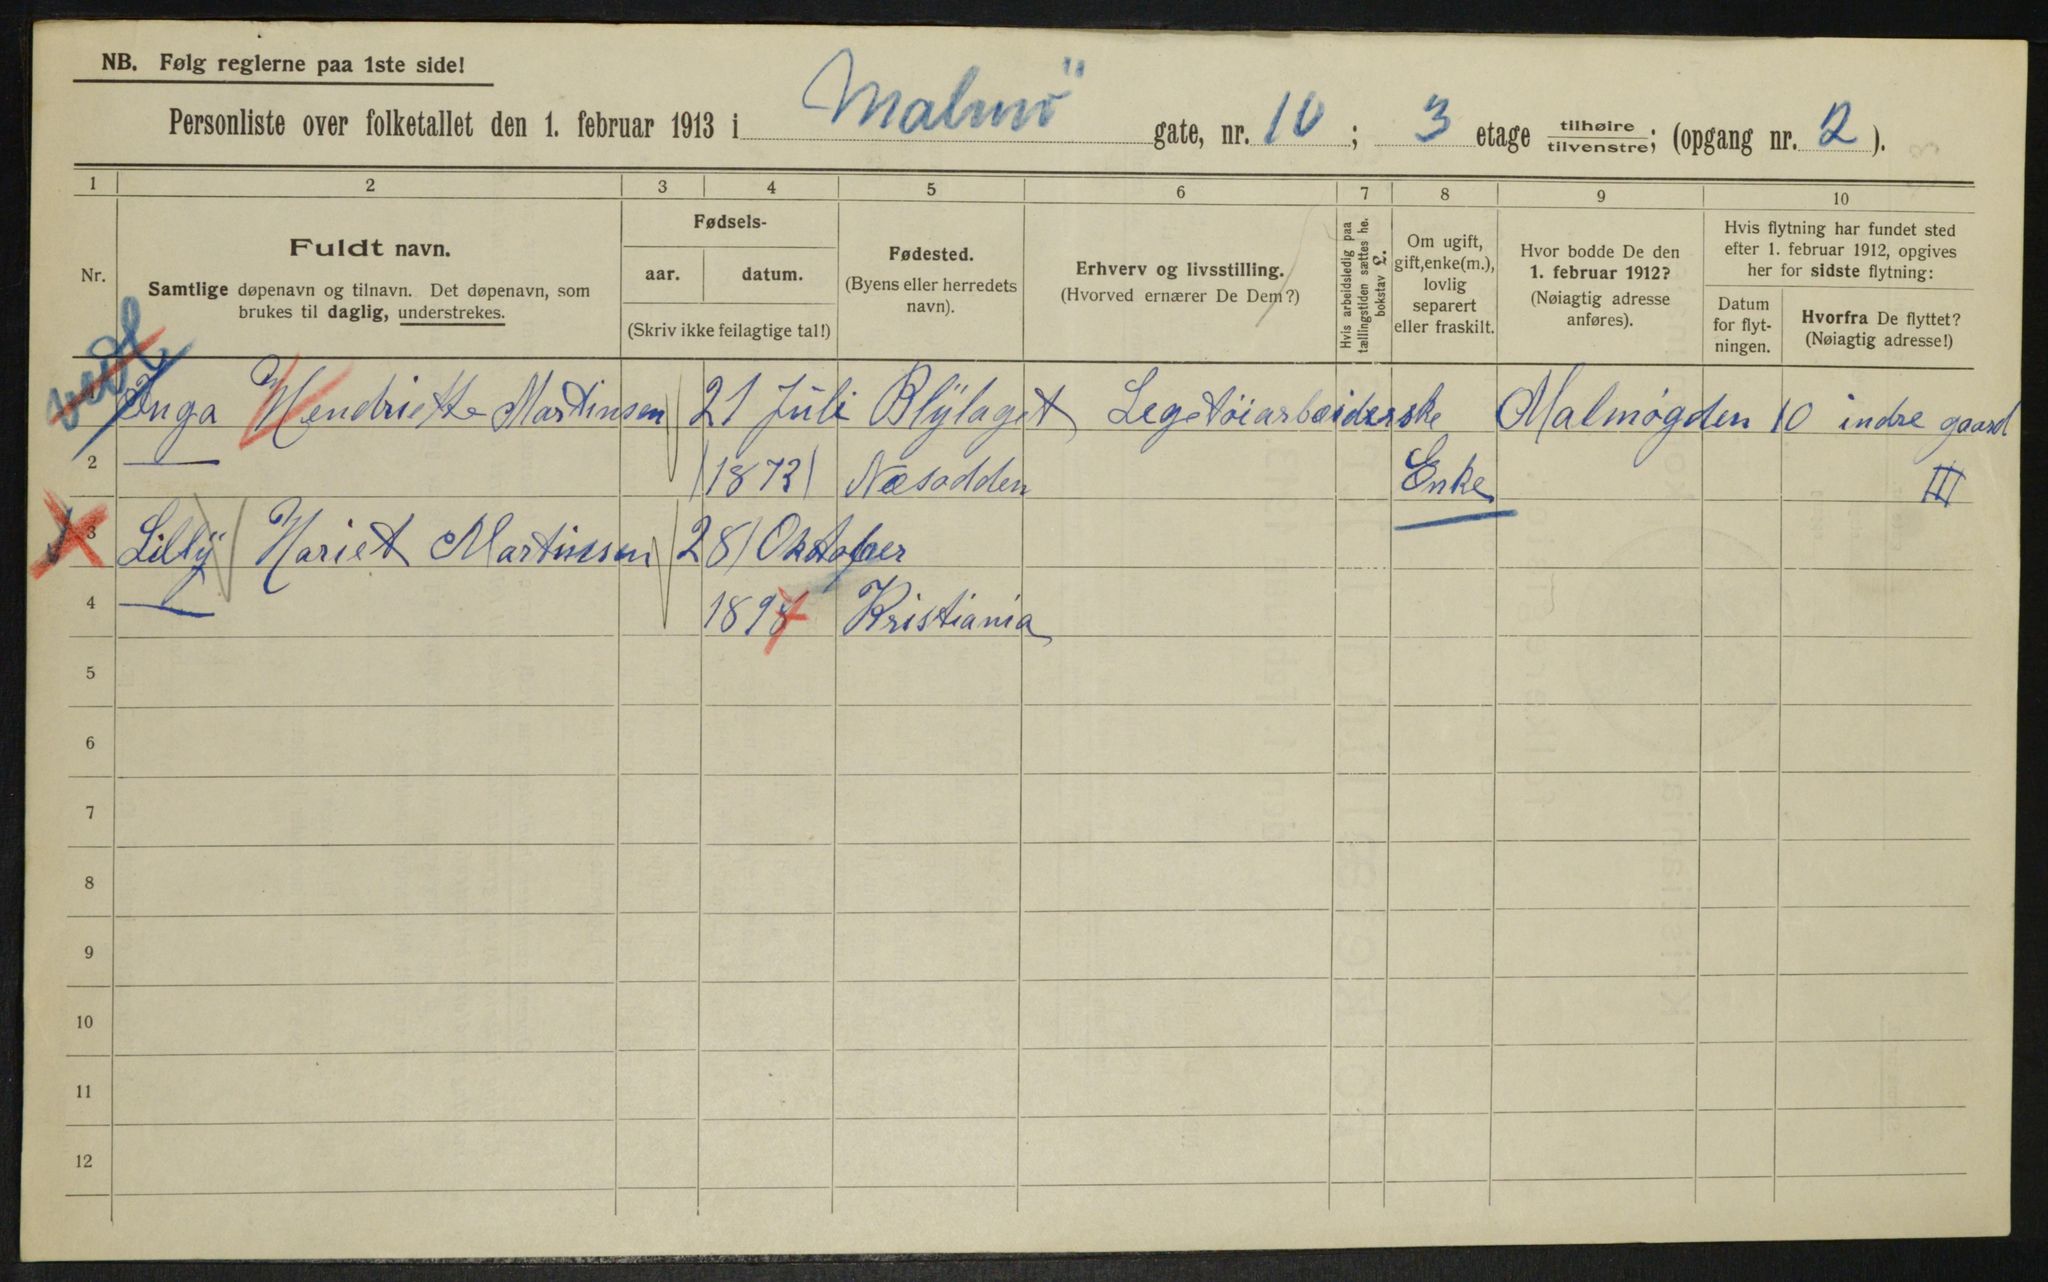 NB. Følg reglerne paa 1ste side!
Personliste over folketallet den 1. februar 1913 i Malmö gate, nr. 10; 3 etage tilhøire tilvenstre; (opgang nr. 2).
1 2 3 4 5 6 7 8 9 10
Nr.
Fuldt navn.
Samtlige døpenavn og tilnavn. Det døpenavn, som
brukes til daglig, understrekes.
Fødsels-
aar. datum.
(Skriv ikke feilagtige tal!)
Fødested.
(Byens eller herredets
navn).
Erhverv og livsstilling.
(Hvorved ernærer De Dem?)
Hvis arbeidsledig paa
tællingstiden sættes he.
bokstav L.
Om ugift,
gift, enke(m.),
lovlig
separert
eller fraskilt.
Hvor bodde De den
1. februar 1912?
(Nøiagtig adresse
anføres).
Hvis flytning har fundet sted
efter 1. februar 1912, opgives
her for sidste flytning:
Datum
for flyt-
ningen.
Hvorfra De flyttet?
(Nøiagtig adresse!)
Inga Hendriette Martinsen 21 Juli Blÿlaget Legetöiarbeiderske Malmøgden 10 indre gaard
2 1873 Næsodden Enke III
3 Lillÿ Hariet Martinsen 28 Oktober
4 1897 Kristiania
5
6
7
8
9
10
11
12